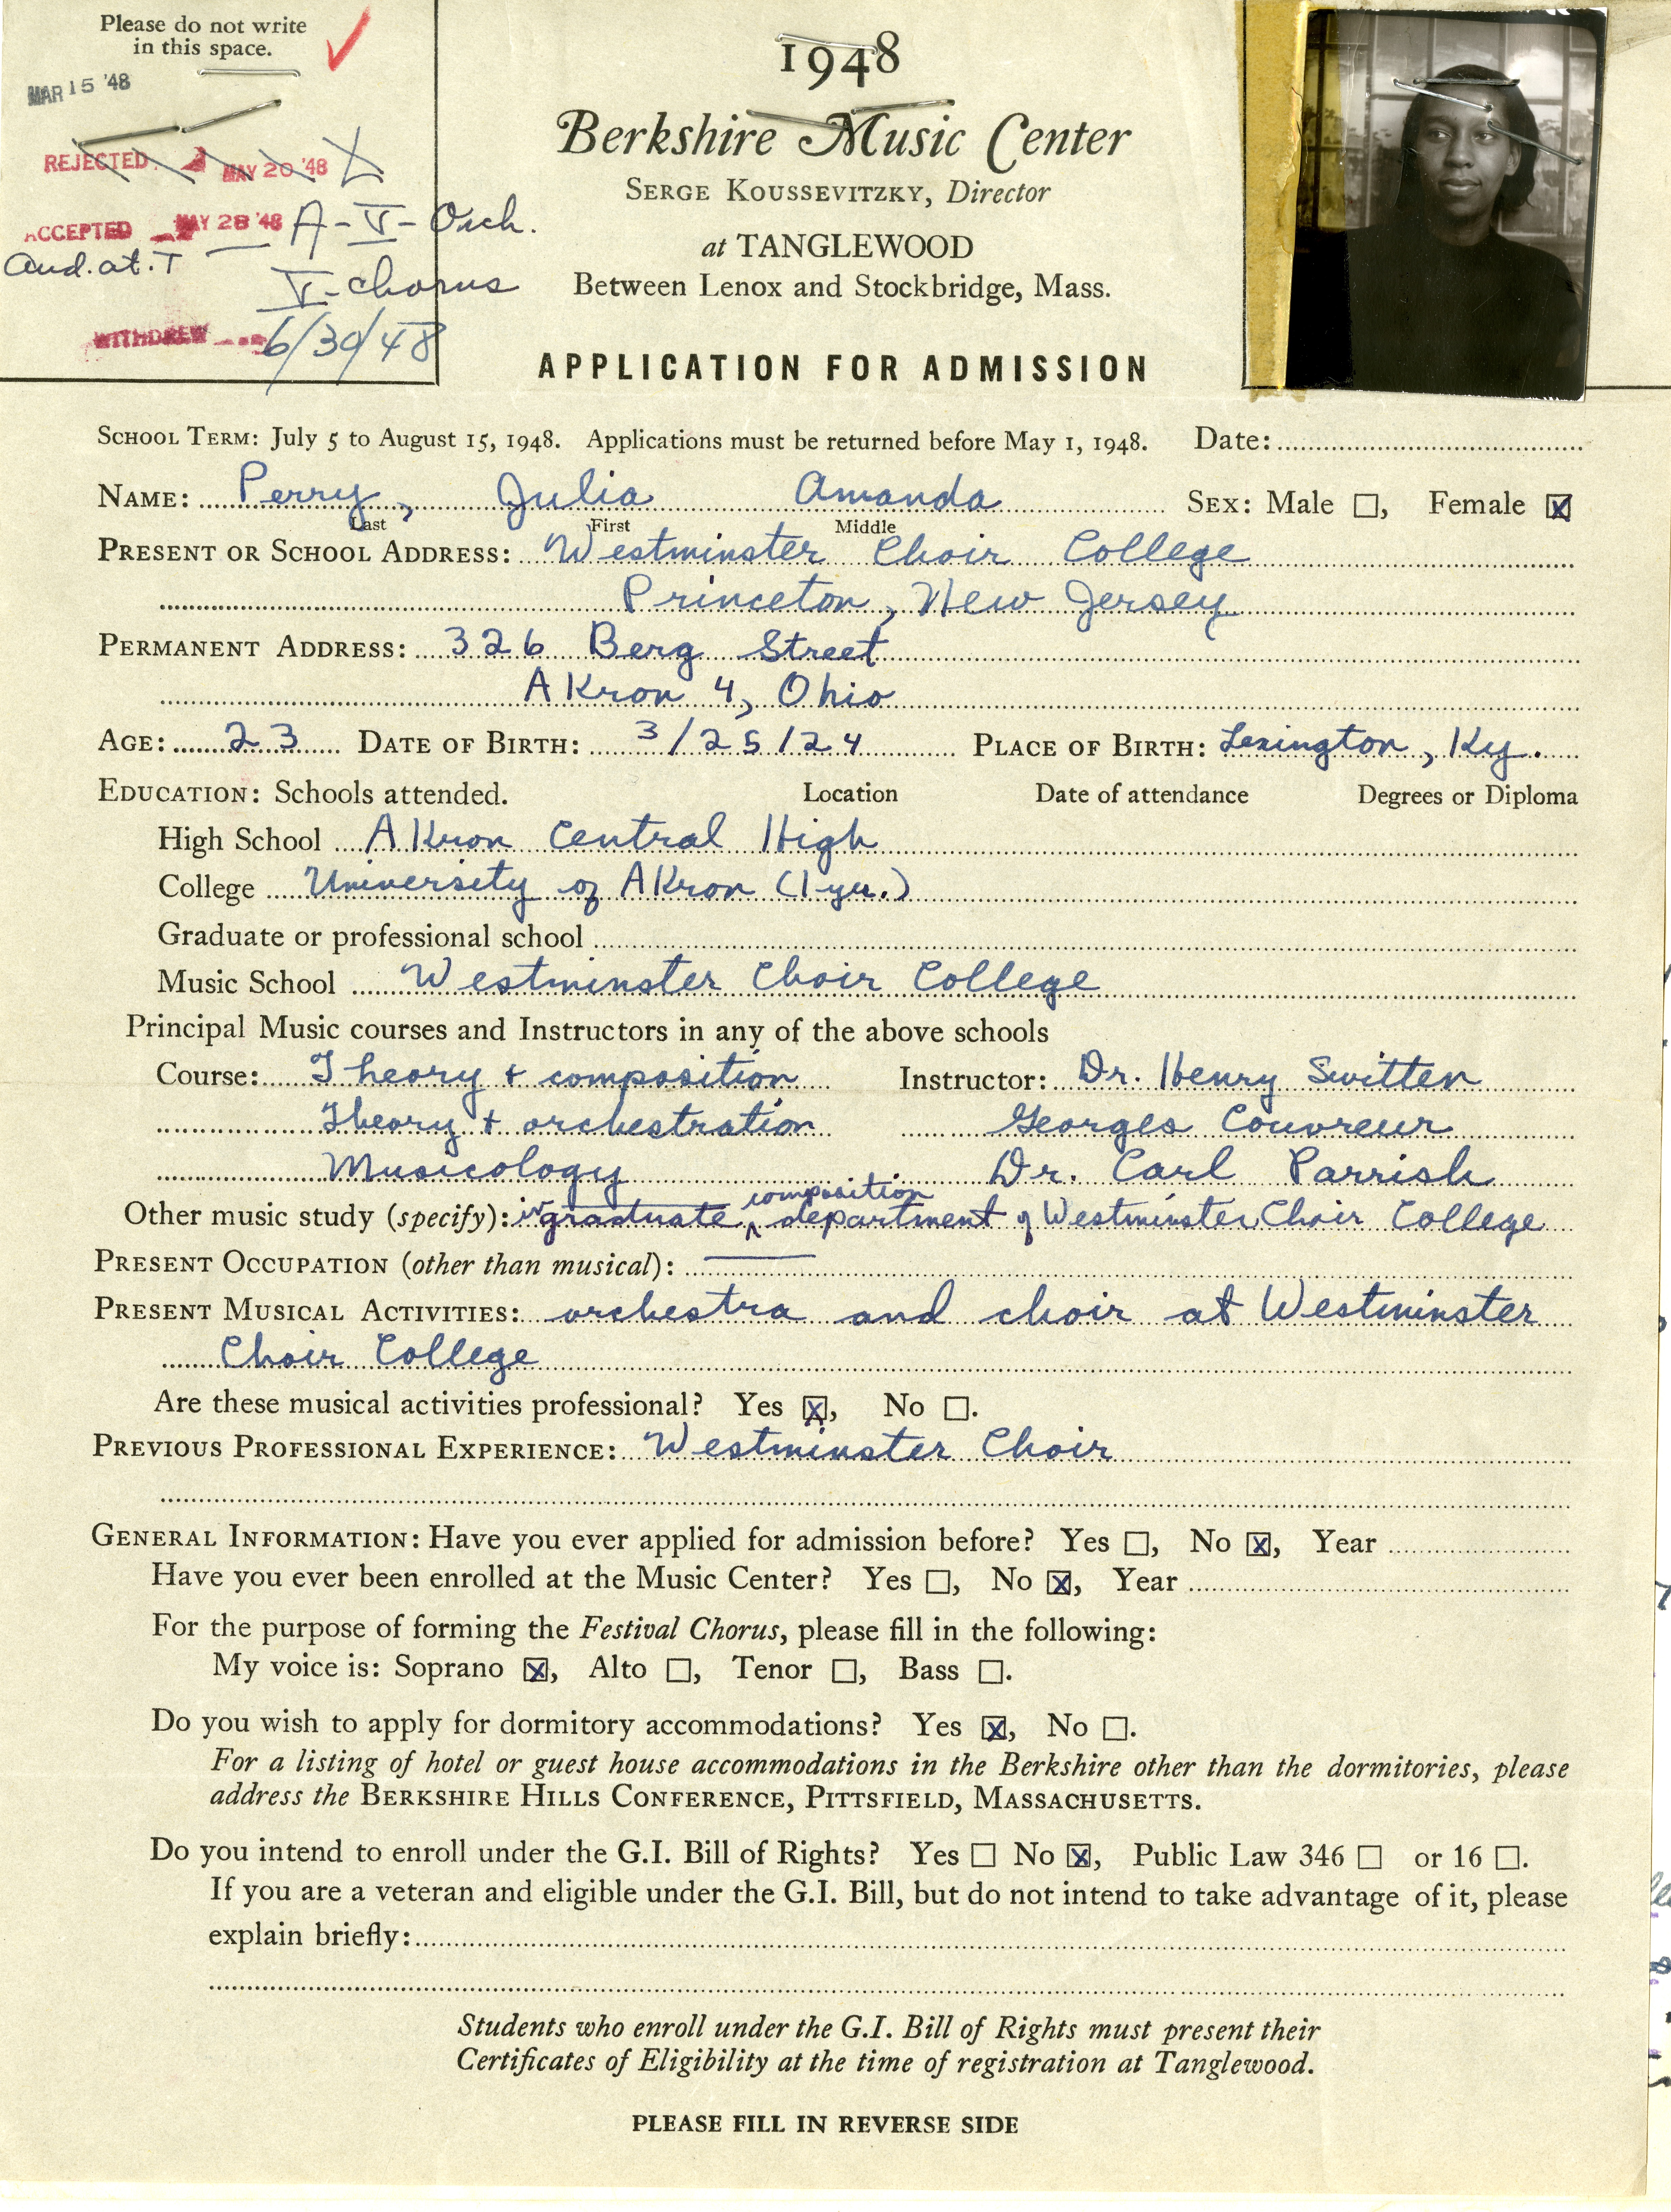 Please do not write
in this space.
MAR 15 '48
REJECTED MAY 20 '48
ACCEPTED MAY 28 '48 A-V-Orch.
Aud. at. T
V-chorus
WITHDREW 6/30/48
1948
Berkshire Music Center
SERGE KOUSSEVITZKY, Director
at TANGLEWOOD
Between Lenox and Stockbridge, Mass.
APPLICATION FOR ADMISSION
SCHOOL TERM: July 5 to August 15, 1948. Applications must be returned before May 1, 1948. Date:
NAME: Perry, Julia Amanda SEX: Male ☐, Female ☒
Last First Middle
PRESENT OR SCHOOL ADDRESS: Westminster Choir College
Princeton, New Jersey
PERMANENT ADDRESS: 326 Berg Street
Akron 4, Ohio
AGE: 23 DATE OF BIRTH: 3/25/24 PLACE OF BIRTH: Lexington, Ky.
EDUCATION: Schools attended. Location Date of attendance Degrees or Diploma
High School Akron Central High
College University of Akron (1 yr.)
Graduate or professional school
Music School Westminster Choir College
Principal Music courses and Instructors in any of the above schools
Course: Theory + composition Instructor: Dr. Henry Switten
Theory + orchestration Georges Couvreur
Musicology Dr. Carl Parrish
Other music study (specify): in graduate composition department of Westminster Choir College
PRESENT OCCUPATION (other than musical): —
PRESENT MUSICAL ACTIVITIES: orchestra and choir at Westminster
Choir College
Are these musical activities professional? Yes ☒, No ☐.
PREVIOUS PROFESSIONAL EXPERIENCE: Westminster Choir
GENERAL INFORMATION: Have you ever applied for admission before? Yes ☐, No ☒, Year
Have you ever been enrolled at the Music Center? Yes ☐, No ☒, Year
For the purpose of forming the Festival Chorus, please fill in the following:
My voice is: Soprano ☒, Alto ☐, Tenor ☐, Bass ☐.
Do you wish to apply for dormitory accommodations? Yes ☒, No ☐.
For a listing of hotel or guest house accommodations in the Berkshire other than the dormitories, please
address the BERKSHIRE HILLS CONFERENCE, PITTSFIELD, MASSACHUSETTS.
Do you intend to enroll under the G.I. Bill of Rights? Yes ☐ No ☒, Public Law 346 ☐ or 16 ☐.
If you are a veteran and eligible under the G.I. Bill, but do not intend to take advantage of it, please
explain briefly:
Students who enroll under the G.I. Bill of Rights must present their
Certificates of Eligibility at the time of registration at Tanglewood.
PLEASE FILL IN REVERSE SIDE